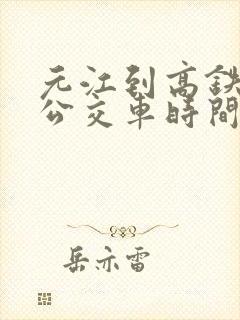 元江到高铁
公交車時間
岳亦雷